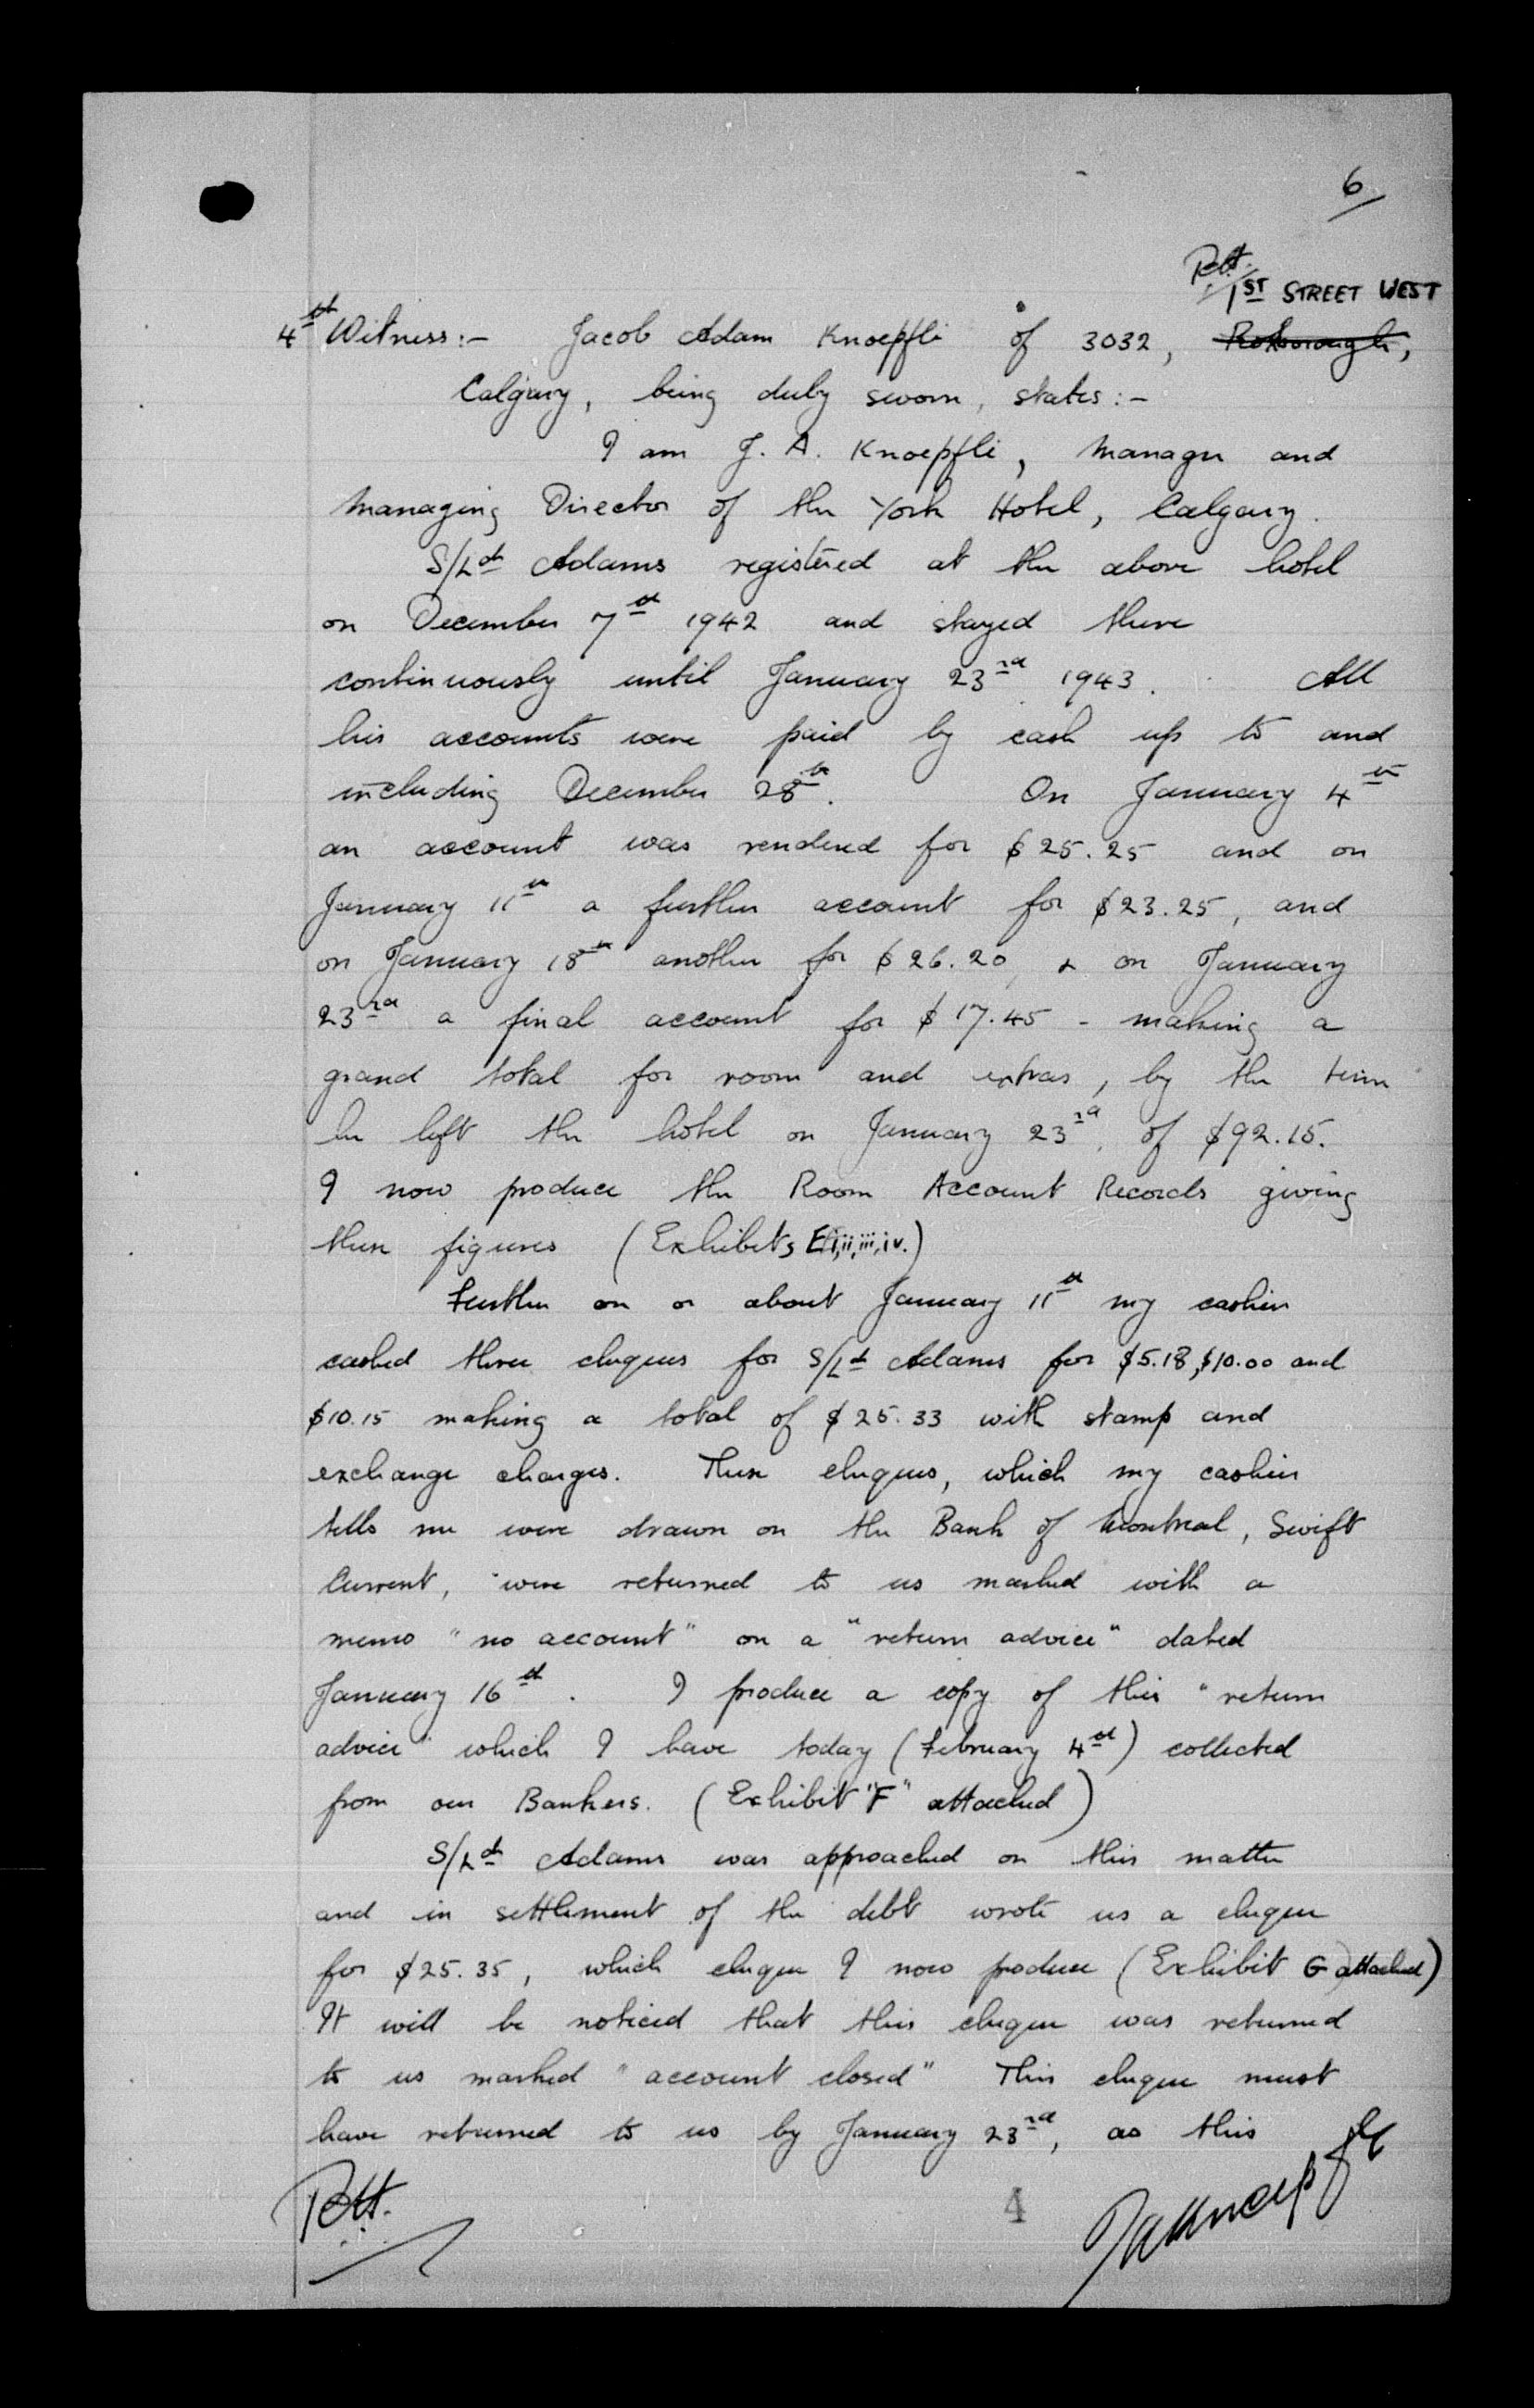 6
1ST STREET WEST
4th Witness:- Jacob Adam Knoepfli of 3032, Roxborough,
Calgary, being duly sworn, states:-
I am J. A. Knoepfli, Manager and
Managing Director of the York Hotel, Calgary.
S/Ldr Adams registered at the above hotel
on December 7th 1942 and stayed there
continuously until January 23rd 1943. All
his accounts were paid by cash up to and
including December 28th. On January 4th
an account was rendered for $25.25 and on
January 11th a further account for $23.25, and
on January 18th another for $26.20, & on January
23rd a final account for $17.45 - making a
grand total for room and extras, by the time
he left the hotel on January 23rd, of $92.15.
I now produce the Room Account Records giving
these figures (Exhibits E i, ii, iii, iv.)
Further on or about January 11th my cashier
cashed three cheques for S/Ldr Adams for $5.18, $10.00 and
$10.15 making a total of $25.33 with stamp and
exchange charges. These cheques, which my cashier
tells me were drawn on the Bank of Montreal, Swift
Current, were returned to us marked with a
memo "no account" on a "return advice" dated
January 16th. I produce a copy of this "return
advice" which I have today (February 4th) collected
from our Bankers. (Exhibit "F" attached)
S/Ldr Adams was approached on this matter
and in settlement of the debt wrote us a cheque
for $25.35, which cheque I now produce (Exhibit G attached)
It will be noticed that this cheque was returned
to us marked "account closed" This cheque must
have returned to us by January 23rd, as this
4
JAKnoepfli